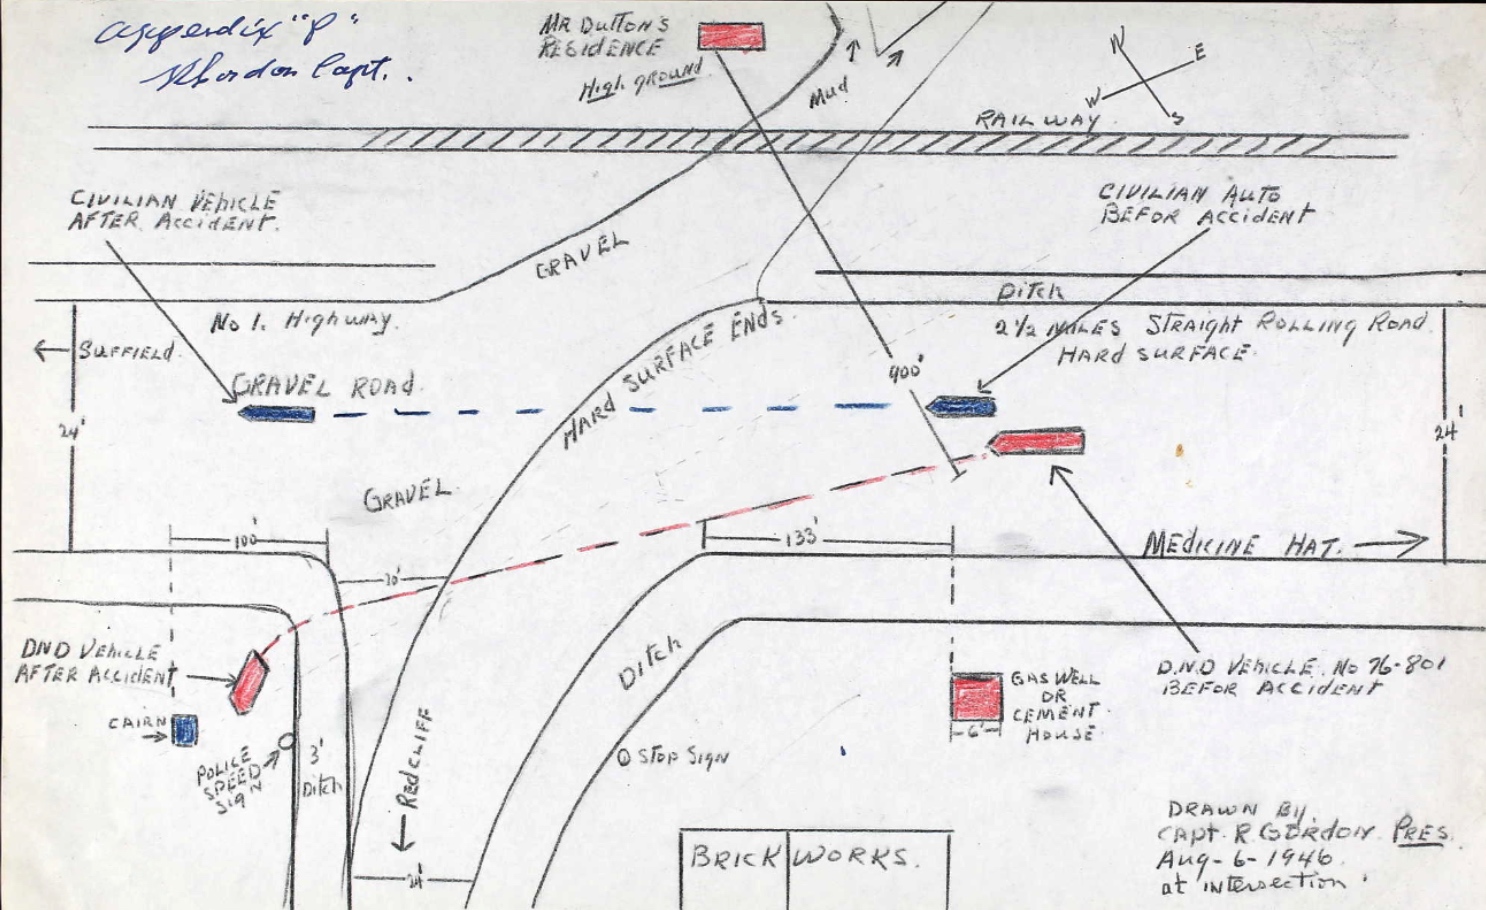 Appendix "P"
RGordon Capt.
MR DUTTON'S
RESIDENCE
High GROUND
Mud
N
E
W
S
RAILWAY
CIVILIAN VEHICLE
AFTER ACCIDENT.
CIVILIAN AUTO
BEFOR ACCIDENT
GRAVEL
Ditch
No 1. Highway.
HARD SURFACE ENDS.
2 1/2 MILES STRAIGHT ROLLING ROAD.
HARD SURFACE.
SUFFIELD.
GRAVEL ROAD.
900'
24'
24'
GRAVEL
100'
133'
MEDICINE HAT.
DND VEHICLE
AFTER ACCIDENT
Ditch
GAS WELL
OR
CEMENT
HOUSE
6'
D.N.D VEHICLE. No 76-801
BEFOR ACCIDENT
CAIRN
POLICE
SPEED
SIGN
3'
Ditch
REDCLIFF
STOP SIGN
24'
BRICK WORKS.
DRAWN By.
CAPt. R. GORDON. PRES.
Aug-6-1946.
at intersection.